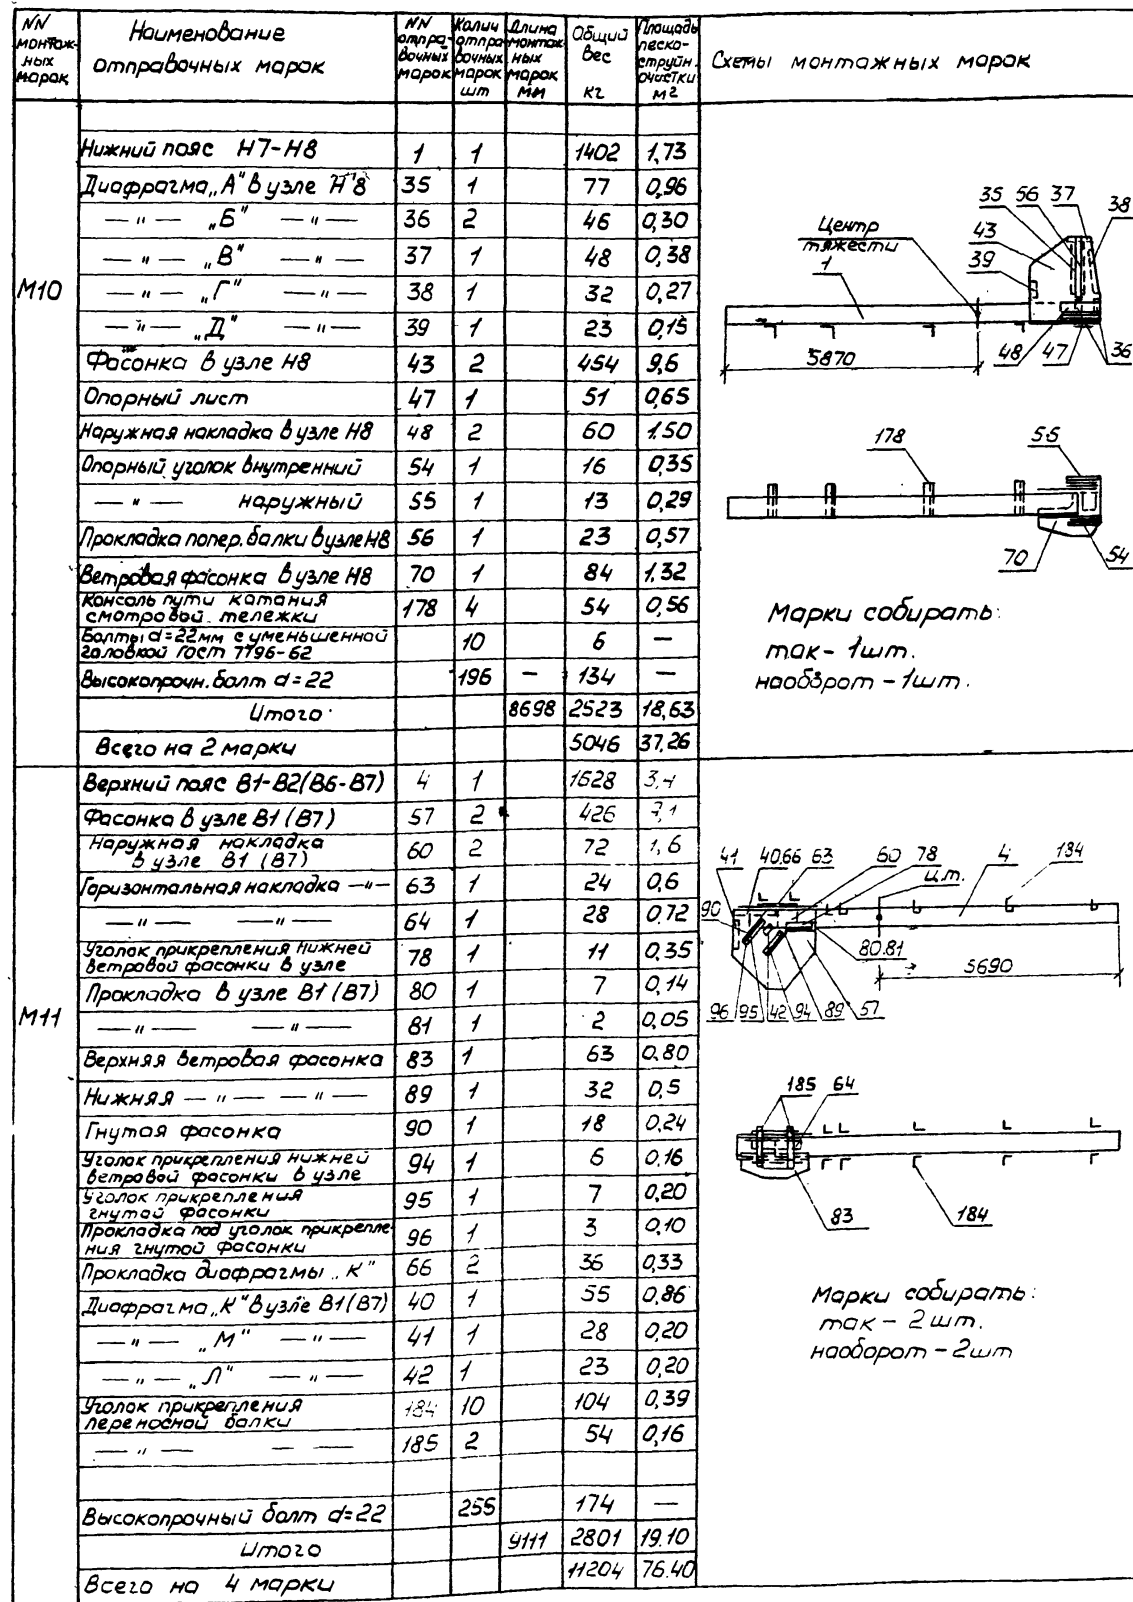 NN монтаж-ных марок Наименование отправочных марок NN отпра-вочных марок Колич отпра-вочных марок шт Длина монтаж-ных марок мм Общий вес кг Площадь песко-струйн. очистки м2 Схемы монтажных марок
М10
Нижний пояс Н7-Н8 1 1 1402 1,73
Диафрагма „А" в узле Н8 35 1 77 0,96
— " — „Б" — " — 36 2 46 0,30
— " — „В" — " — 37 1 48 0,38
— " — „Г" — " — 38 1 32 0,27
— " — „Д" — " — 39 1 23 0,15
Фасонка в узле Н8 43 2 454 9,6
Опорный лист 47 1 51 0,65
Наружная накладка в узле Н8 48 2 60 1.50
Опорный уголок внутренний 54 1 16 0,35
— " — наружный 55 1 13 0,29
Прокладка попер. балки в узле Н8 56 1 23 0,57
Ветровая фасонка в узле Н8 70 1 84 1,32
Консоль пути катания
смотровой тележки 178 4 54 0,56
Болты d=22мм с уменьшенной
головкой гост 7796-62 10 6 —
Высокопрочн. болт d=22 196 — 134 —
Итого 8698 2523 18,63
Всего на 2 марки 5046 37.26
35 56 37 38
Центр
тяжести
43
1
39
48 47 36
5870
178 55
70 54
Марки собирать:
так - 1шт.
наоборот - 1шт.
М11
Верхний пояс В1-В2(В6-В7) 4 1 1628
Фасонка в узле В1 (В7) 57 2 426
Наружная накладка
в узле В1 (В7) 60 2 72 1,6
Горизонтальная накладка — " — 63 1 24 0,6
— " — — " — 64 1 28 0.72
Уголок прикрепления нижней
ветровой фасонки в узле 78 1 11 0,35
Прокладка в узле В1 (В7) 80 1 7 0,14
— " — — " — 81 1 2 0,05
Верхняя ветровая фасонка 83 1 63 0,80
Нижняя — " — — " — 89 1 32 0,5
Гнутая фасонка 90 1 18 0,24
Уголок прикрепления нижней
ветровой фасонки в узле 94 1 6 0.16
Уголок прикрепления
гнутой фасонки 95 1 7 0,20
Прокладка под уголок прикрепле-
ния гнутой фасонки 96 1 3 0,10
Прокладка диафрагмы „К" 66 2 36 0,33
Диафрагма „К" в узле В1(В7) 40 1 55 0,86
— " — „М" — " — 41 1 28 0,20
— " — „Л" — " — 42 1 23 0,20
Уголок прикрепления
переносной балки 184 10 104 0,39
— " — — — 185 2 54 0,16
Высокопрочный болт d=22 255 174 —
Итого 9111 2801 19.10
Всего на 4 марки 11204 76.40
41 40,66 63 60 78 4 184
ц.т.
90
80.81
5690
96 95 42 94 89 57
185 64
83 184
Марки собирать:
так - 2шт.
наоборот - 2шт